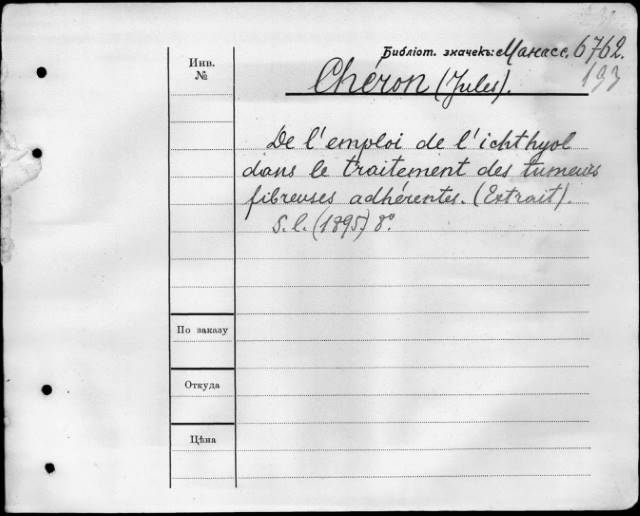 Библіот. значекъ: Манасс. 6762.
193
Инв.
№
Chéron (Jules).
De l'emploi de l'ichthyol
dans le traitement des tumeurs
fibreuses adhérentes. (Extrait).
S. l. (1895) 8°.
По заказу
Откуда
Цѣна